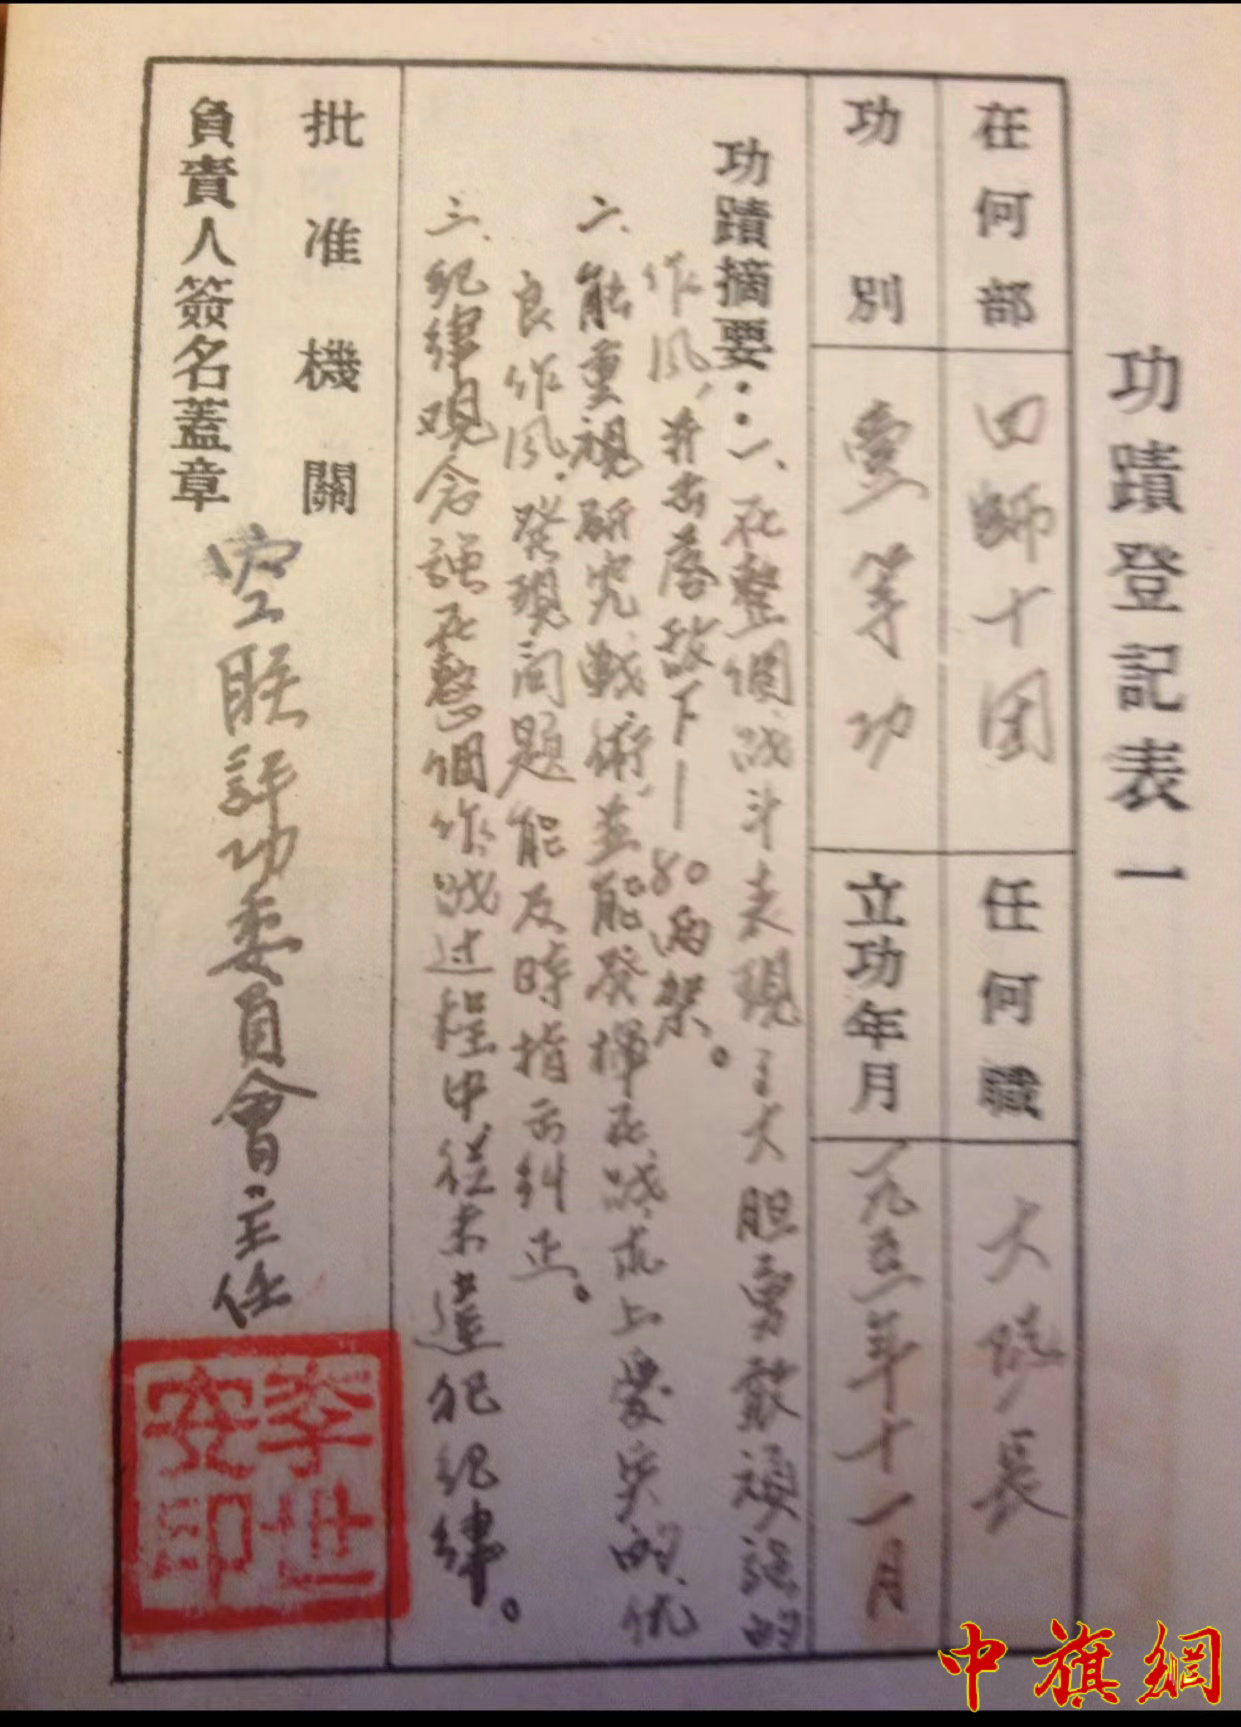 功蹟登記表一
在何部 四师十团 任何職 大队長
功別 壹等功 立功年月 一九五一年十一月
功蹟摘要：一、在整個战斗表現了大胆勇敢頑强的
作风，并击落敌下一80両架。
二、能重視研究戰術，並能發揮在战术上爱兵的优
良作风，發現问题能及時指示糾正。
三、纪律观念强在整個作战过程中从未違犯纪律。
批准機關
負責人簽名蓋章
空联評功委員會主任
李世安印
中旗網